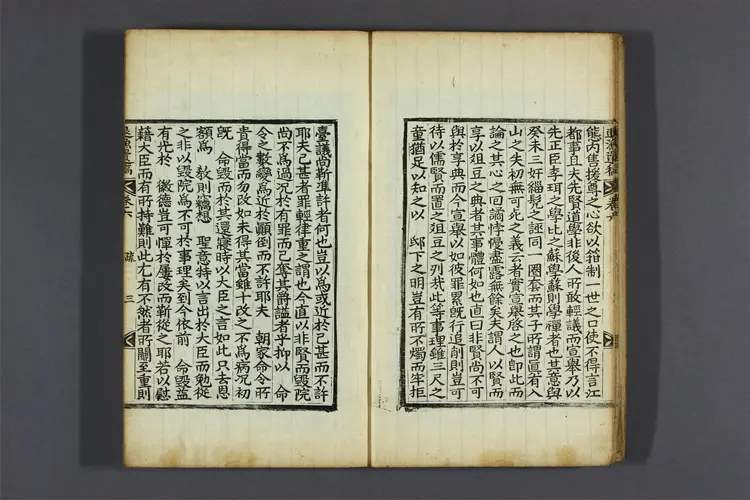 態丙售援尊之心欲以箝制一世之口使不得言江
都事且夫先賢道學非後人所敢輕議而宣舉乃以
先正臣李珥之學比之蘇學蘇則學禪者也其意與
癸未三奸緇髡之誣同一圈套而其子所謂眞有入
山之失初無可死之義云者實宣舉啓之也卽此而
論之其心之回譎悖慢盡露無餘矣夫謂人以賢而
享以俎豆之典者其事體何如也直曰非賢尚不可
與於享典而今宣舉以如彼罪累旣行追削則豈可
待以儒賢而置之俎豆之列哉此等事理雖三尺之
童猶足以知之以 邸下之明豈有所不燭而牢拒
臺議尚靳準許者何也豈以爲或近於已甚而不許
耶夫已甚者罪輕律重之謂也今直以非賢而毀院
尚不爲過况於有罪而已奪其爵謚者乎抑以 命
令之數變爲近於顚倒而不許耶夫 朝家命令所
貴得當而勿改如未得其當雖十改之不爲病况初
旣 命毀而於其還寢時以大臣之言如此只去恩
額爲 敎則竊想 聖意特以言出於大臣而勉從
之非以毀院爲不可於事理矣到今依前 命毀益
有光於 徽德豈可憚於屢改而靳從之耶若以慰
藉大臣而有所持難則此尤有不然者所關至重則
卷六
疏
三